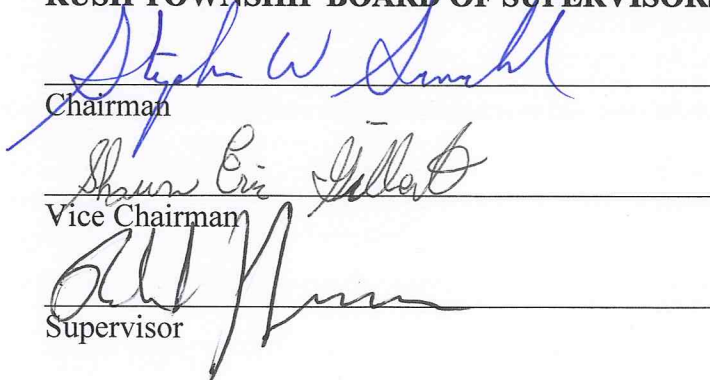 RUSH TOWNSHIP BOARD OF SUPERVISORS
Stephen W
Chairman
Shawn Eric Gilbert
Vice Chairman
Supervisor